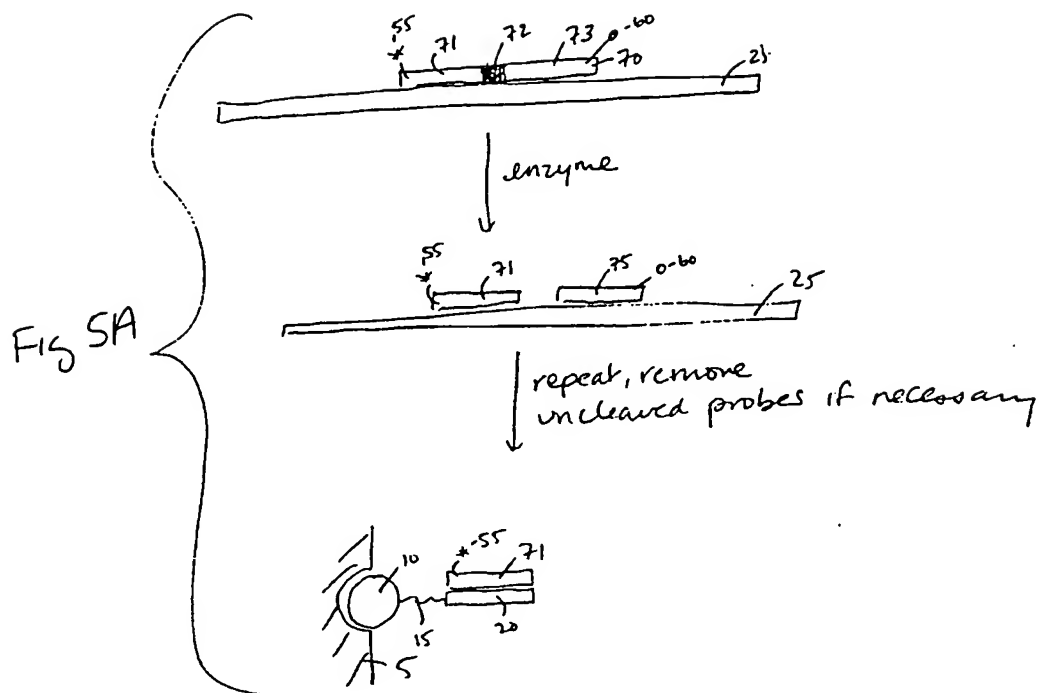 55 71 72 73 60 70 25
*
enzyme
55 71 75 0-60 25
*
Fig 5A
repeat, remove
uncleaved probes if necessary
10 *-55 71
15 20
5